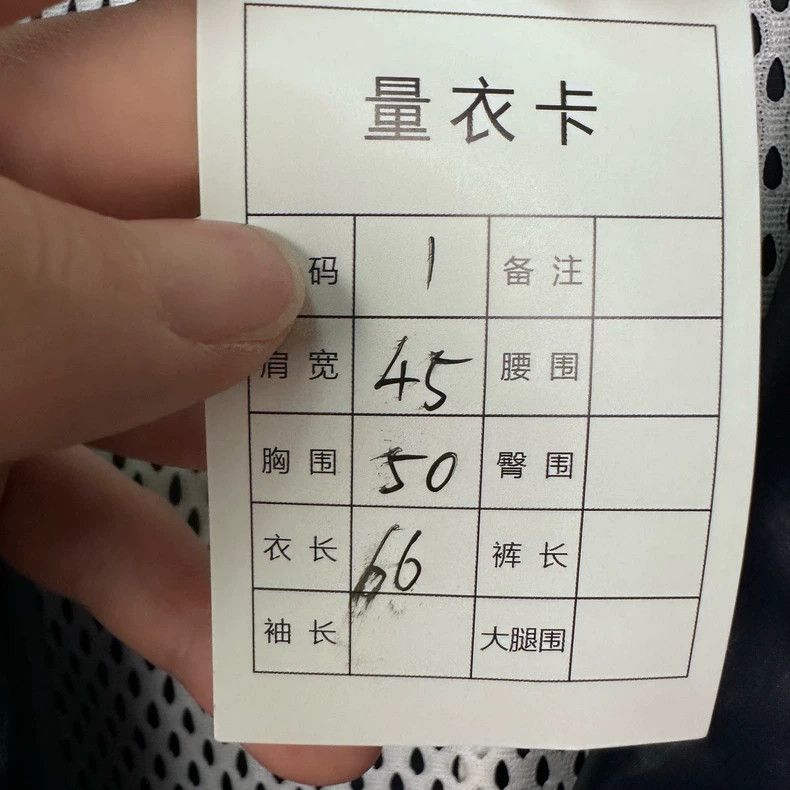 量衣卡
码 1 备注
肩宽 45 腰围
胸围 50 臀围
衣长 66 裤长
袖长 大腿围